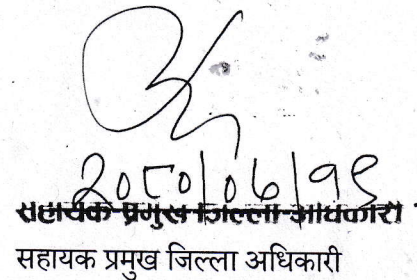 २०८०|०७|१९
सहायक प्रमुख जिल्ला अधिकारी
सहायक प्रमुख जिल्ला अधिकारी